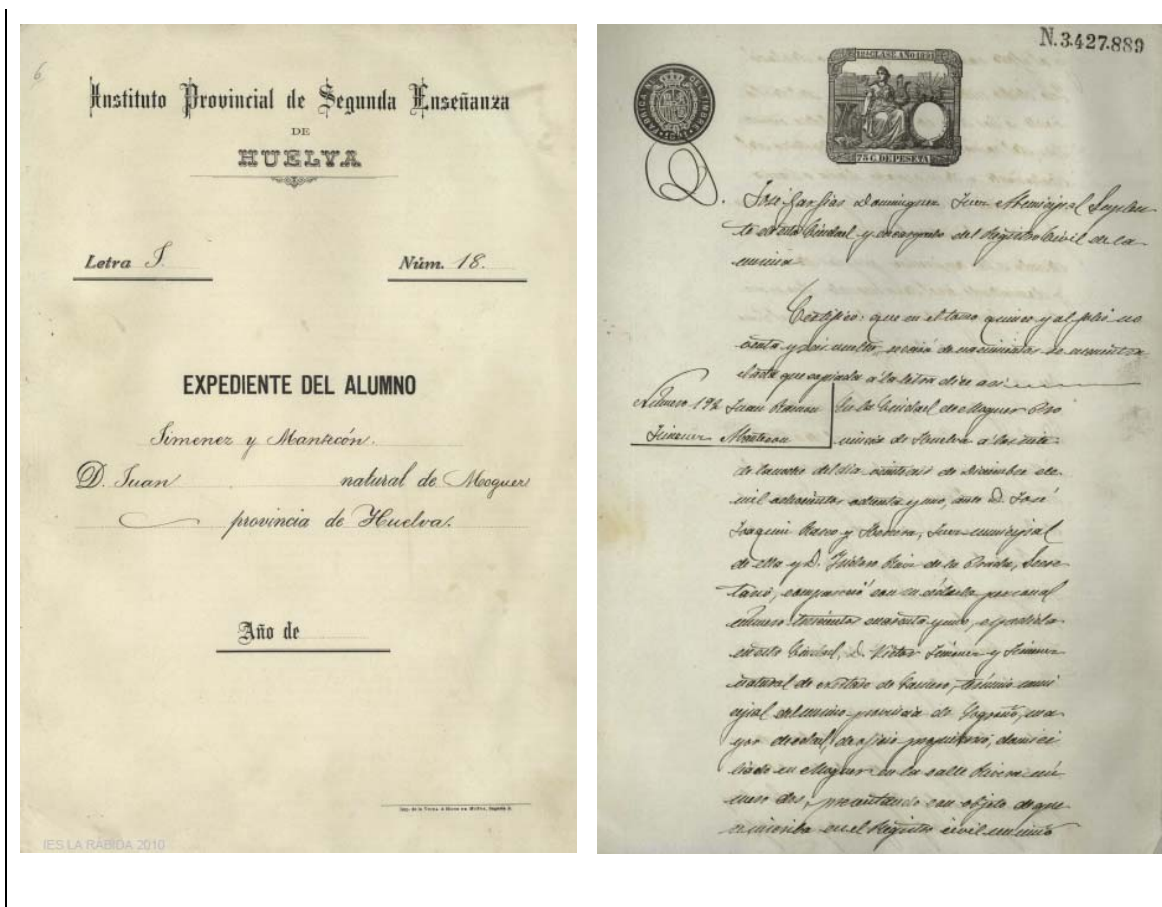 6
Instituto Provincial de Segunda Enseñanza
DE
HUELVA
Letra J.
Núm. 18.
EXPEDIENTE DEL ALUMNO
Jimenez y Mantecón.
D. Juan natural de Moguer
provincia de Huelva.
Año de
IES LA RÁBIDA 2010
N.3.427.889
12ª CLASE AÑO 1891
75 C. DE PESETA
José Dominguez Juez Municipal Suplen-
te de esta Ciudad, y encargado del Registro Civil de la
misma
Certifico: que en el tomo quince y al folio no
venta y seis vuelto, sección de nacimientos se encuentra
el acta que copiada a la letra dice asi
Numero 192 Juan Ramon
Jimenez Mantecon
En la Ciudad de Moguer Pro
vincia de Huelva a las siete
de la noche del dia veintiseis de Diciembre de
mil ochocientos ochenta y uno, ante D. José
Joaquin Rasco y Juez municipal
de ella y D. Isidoro Ruiz de la Secre
tario, compareció con su cédula personal
numero trescientos cuarenta y uno, expedida
en esta Ciudad, D. Victor Jimenez y Jimenez
natural de término muni
cipal del mismo provincia de Logroño, ma
yor de edad, de oficio propietario, domici
liado en Moguer en la calle Rivera nú
mero dos, presentando con objeto de que
se inscriba en el Registro civil un niño